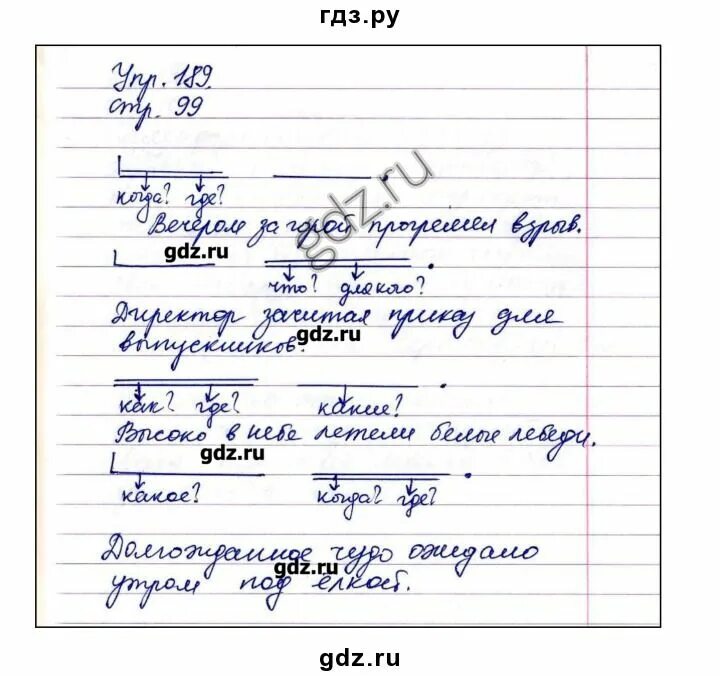 гдз.ру
Упр. 189.
стр. 99
когда? где?
Вечером за горой прогремел взрыв.
gdz.ru
gdz.ru
что? для кого?
Директор зачитал приказ для
gdz.ru
выпускников.
как? где? какие?
Высоко в небе летели белые лебеди.
gdz.ru
какое? когда? где?
Долгожданное чудо ожидало
gdz.ru
утром под ёлкой.
gdz.ru